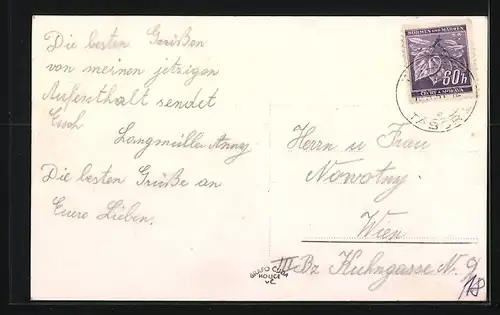 Die besten Grüßen
von meinen jetzigen
Aufenthalt sendet
Euch
Langmüller Anny
Die besten Grüße an
Euere Lieben.
BÖHMEN UND MÄHREN
60h
ČECHY A MORAVA
TÁBOR
Herrn u Frau
Nowotny.
Wien
III. Bz Kuhngasse N. 9
/18
GRAFO ČUDA
HOLICE